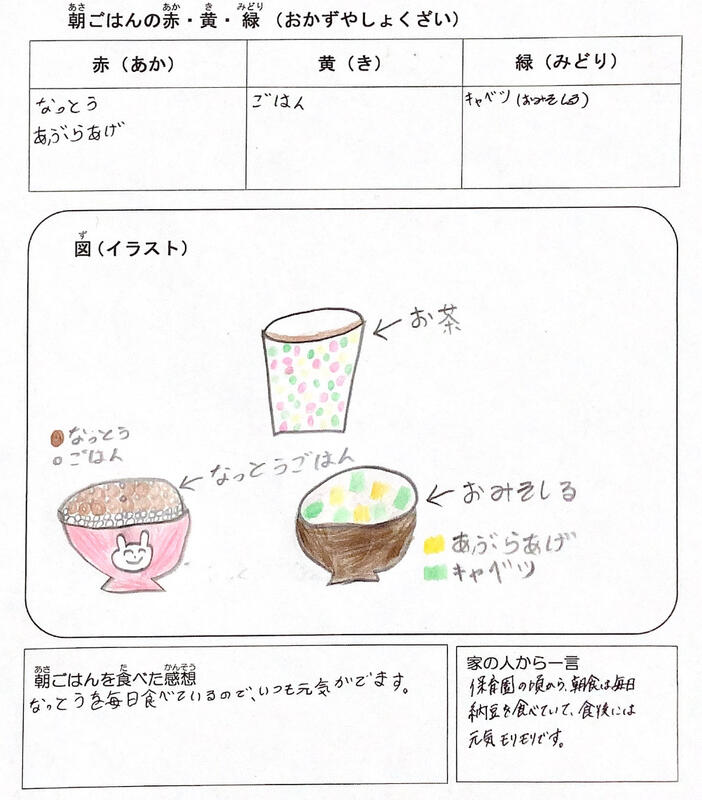 朝ごはんの赤・黄・緑（おかずやしょくざい）
赤（あか）
黄（き）
緑（みどり）
なっとう
あぶらあげ
ごはん
キャベツ(おみそしる)
図（イラスト）
お茶
なっとう
ごはん
なっとうごはん
おみそしる
あぶらあげ
キャベツ
朝ごはんを食べた感想
なっとうを毎日食べているので、いつも元気がでます。
家の人から一言
保育園の頃から、朝食は毎日
納豆を食べていて、食後には
元気モリモリです。